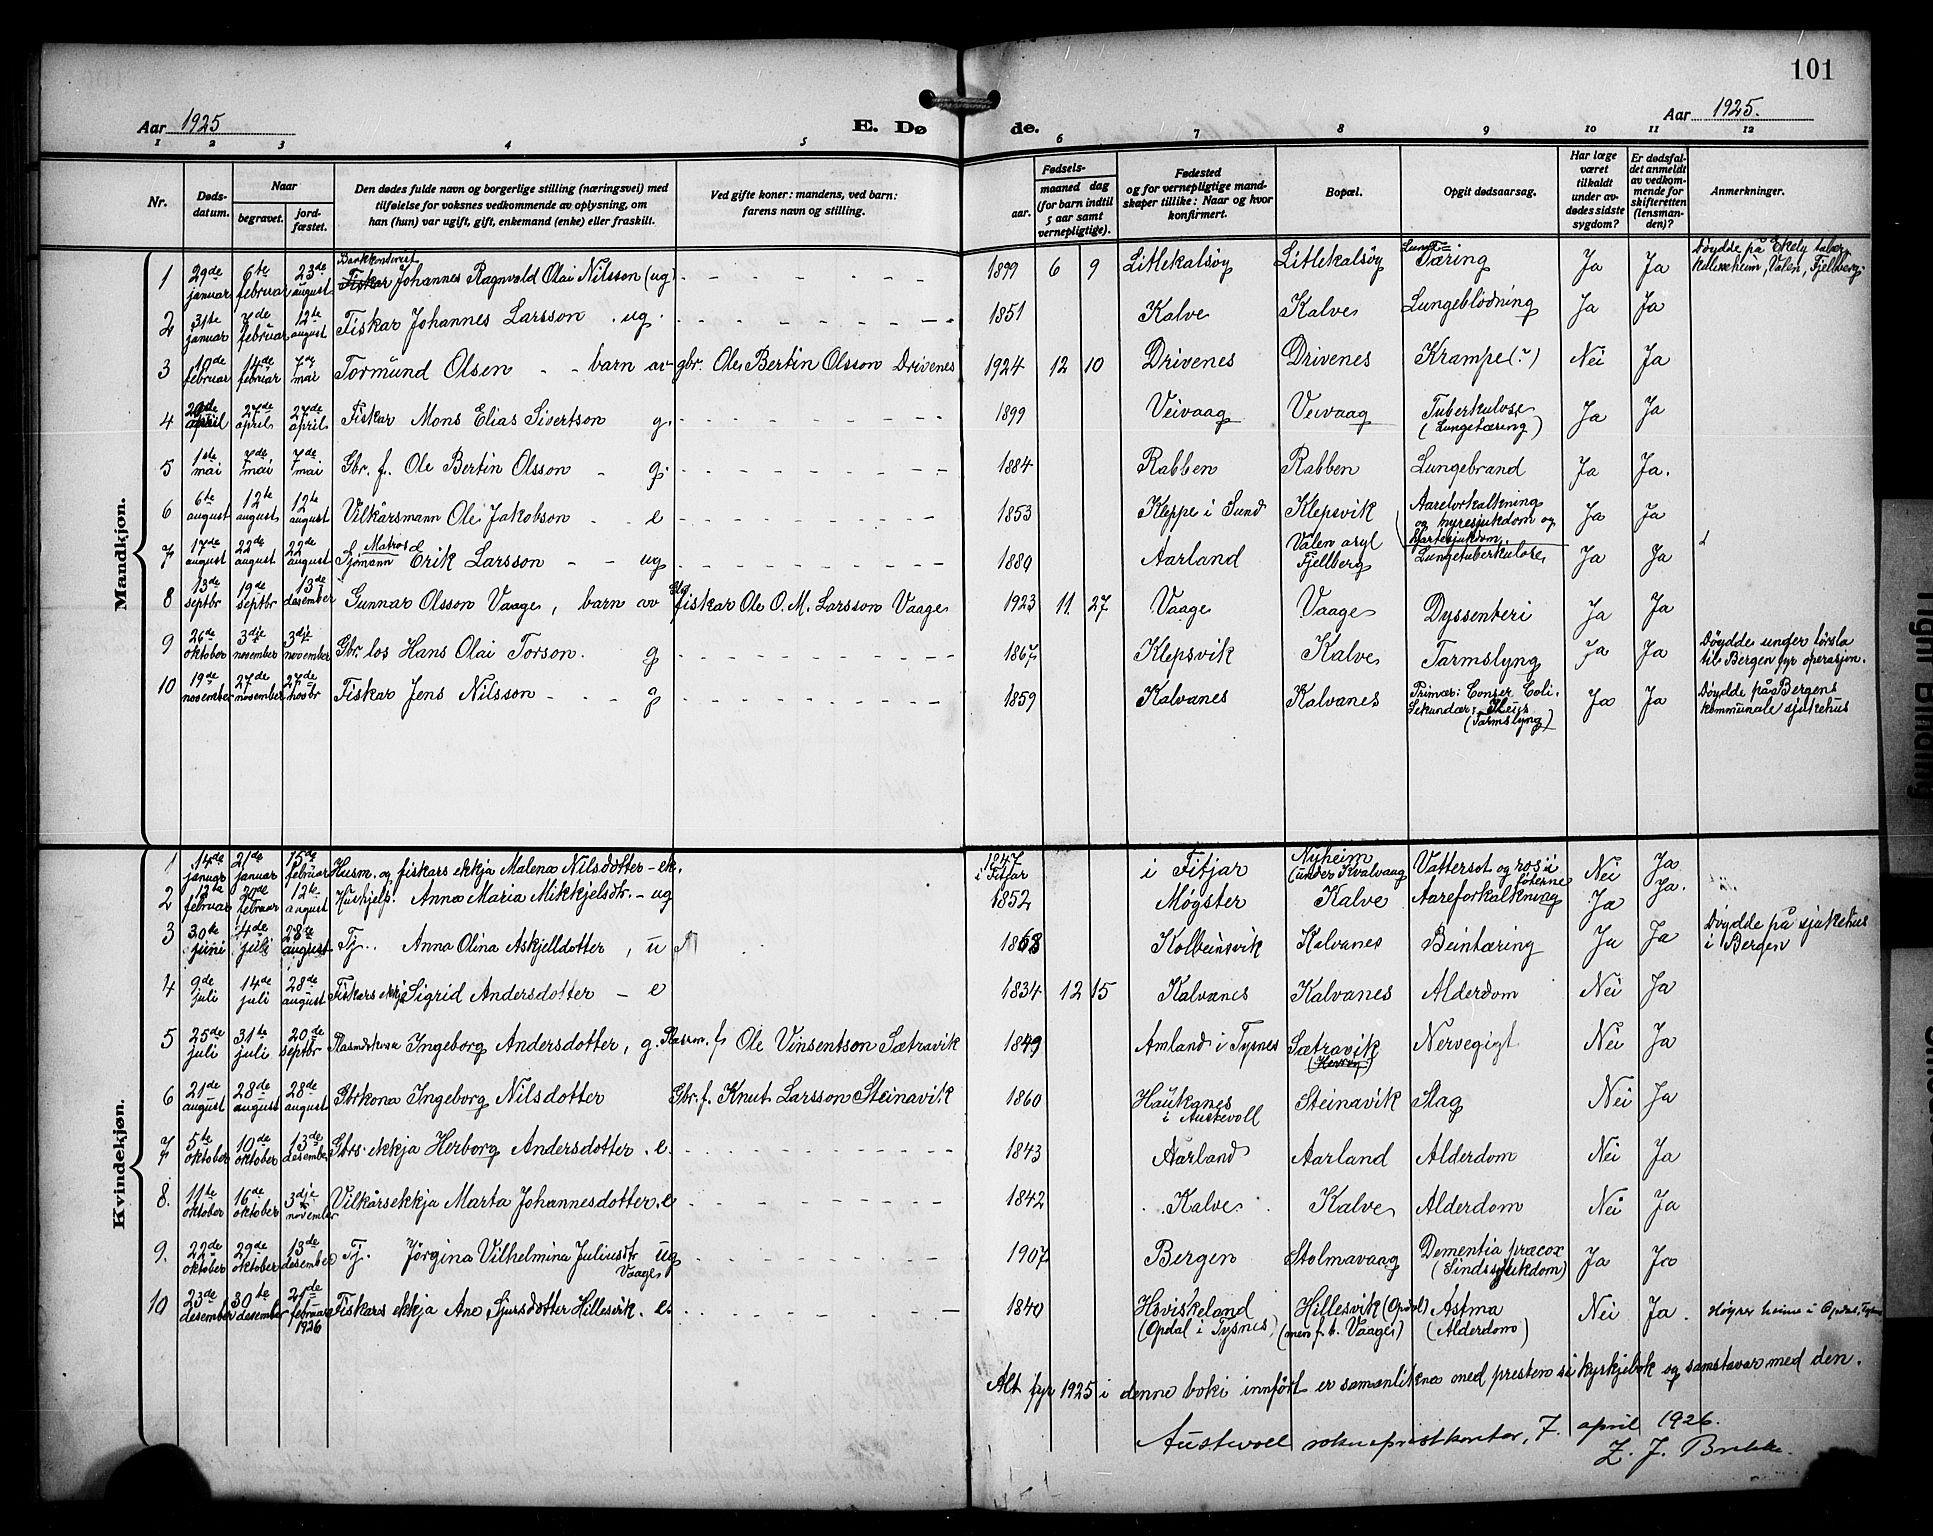 101
Aar 1925
E. Dø
de.
Aar 1925.
1 2 3 4 5 6 7 8 9 10 11 12
Nr.
Døds-
datum.
Naar
begravet.
jord-
fæstet.
Den dødes fulde navn og borgerlige stilling (næringsvei) med
tilføielse for voksnes vedkommende av oplysning, om
han (hun) var ugift, gift, enkemand (enke) eller fraskilt.
Ved gifte koner: mandens, ved barn:
farens navn og stilling.
Fødsels-
aar.
maaned dag
(for barn indtil
5 aar samt
vernepligtige).
Fødested
og for vernepligtige mand-
skaper tillike: Naar og hvor
konfirmert.
Bopæl.
Opgit dødsaarsag.
Har læge
været
tilkaldt
under av-
dødes sidste
sygdom?
Er dødsfal-
det anmeldt
av vedkom-
mende for
skifteretten
(lensman-
den)?
Anmerkninger.
Mandkjøn.
1 29de januar 6te februar 23de august Fiskar Johannes Ragnvald Olai Nilsson (ug) 1899 6 9 Litlekalsøy Litlekalsøy Lunge= Tæring Ja Ja Døydde på Ekely tuber
kuloseheim, Valen, Fjellberg.
2 31te januar 7de februar 12te august Fiskar Johannes Larsson . ug. 1851 Kalve Kalve Lungeblödning Ja Ja
3 10de februar 14de februar 7de mai Tormund Olsen - - barn av gbr. Ole Bertin Olsson Drivenes 1924 12 10 Drivenes Drivenes Krampe (?) Nei Ja
4 april 27de april 27de april Fiskar Mons Elias Sivertson g. 1899 Veivaag Veivaag Tuberkulose
(Lungetæring) Ja Ja
5 1ste mai 7de mai 7de mai Gbr. f. Ole Bertin Olsson - g. 1884 Rabben Rabben Lungebrand Ja Ja.
6 6te august 12te august 12te august Vilkårsmann Ole Jakobson - - e 1853 Kleppe i Sund Klepsvik Aareforkalkning
og nyresjukdom og
hjartesjukdom. Ja Ja
7 17de august 22de august 22de august Sjømann Matros Erik Larsson - - ug 1880 Aarland Valen asyl
Fjellberg Lungetuberkulose, Ja Ja
8 13de septbr 19de septbr 13de desember Gunnar Olsson Vaage, barn av fiskar Ole O. M. Larsson Vaage 1923 11 27 Vaage Vaage Dyssenteri Ja Ja
9 26de oktober 3dje november 3dje november Gbr. los Hans Olai Torson. g 1867 Klepsvik Kalve Tarmslyng Ja Ja Døydde under førsla
til Bergen fyr operasjon.
10 19de november 27de november 27de novbr Fiskar Jens Nilsson - - - g 1859 Kalvanes Kalvanes Primær: Cancer Coli.
Sekundær: Ileus
(Tarmslyng) Ja Ja Døydde på Bergens
kommunale sjukehus
Kvindekjøn.
1 14de januar 21de januar 15de februar Husm. og fiskars ekkja Malena Nilsdotter - ek. 1847
i Fitjar i Fitjar Nyheim
(under Kvalvaag Vattersot og rosi i
föterne Nei Ja
2 12te februar februar 12te august Hushjelp. Anna Maria Mikkjelsdtr. - ug 1852 Møgster Kalve Aareforkalkning Ja Ja.
3 30te juni 4de juli 28de august Tj. Anna Olina Askjelldotter, u 1868 Kolbeinsvik Kalvanes Beintæring Ja Ja Døydde på sjukehus
i Bergen
4 9de juli 14de juli 28de august Fiskars ekkje Sigrid Andersdotter - e 1834 12 15 Kalvanes Kalvanes Alderdom Nei Ja
5 25de juli 31te juli 20de septbr Ingeborg Andersdotter, g. Plassm. f. Ole Vinsentson Sætravik 1849 Amland i Tysnes Sætravik Nervegigt Nei Ja
6 21de august 28de august 28de august Gbrkona Ingeborg Nilsdotter Gbr. f. Knut Larsson Steinavik 1860 Haukanes
i Austevoll Steinavik Slag Nei Ja
7 5te oktober 10de oktober 13de desember Gbrs. ekkja Herborg Andersdotter. e. 1843 Aarland Aarland Alderdom Nei Ja
8. 11te oktober 16de oktober 3dje november Vilkårsekkja Marta Johannesdotter. e 1842 Kalve Kalve Alderdom Nei Ja
9. 22de oktober 29de oktober 13de desember Tj. Jörgina Vilhelmina Juliusdtr ug
Vaage 1907 Bergen Stolmavaag Dementia præcox
(Sindssjukdom) Ja Ja
10 23de desember 30te desember 21de februar
1926 Fiskars ekkja Ane Sjursdotter Hillesvik. e. 1840 Hoviskeland
(Opdal i Tysnes) Hillesvik (Opdal)
(men f. t. Vaage) Astma
(Alderdom) Nei Ja. Høyrer heime i Opdal, Tysnes
Alt fyr 1925 i denne boki innført er samanlikna med presten si kyrkjebok og samstavar med den.
Austevoll sokneprestkontor, 7. april 1926.